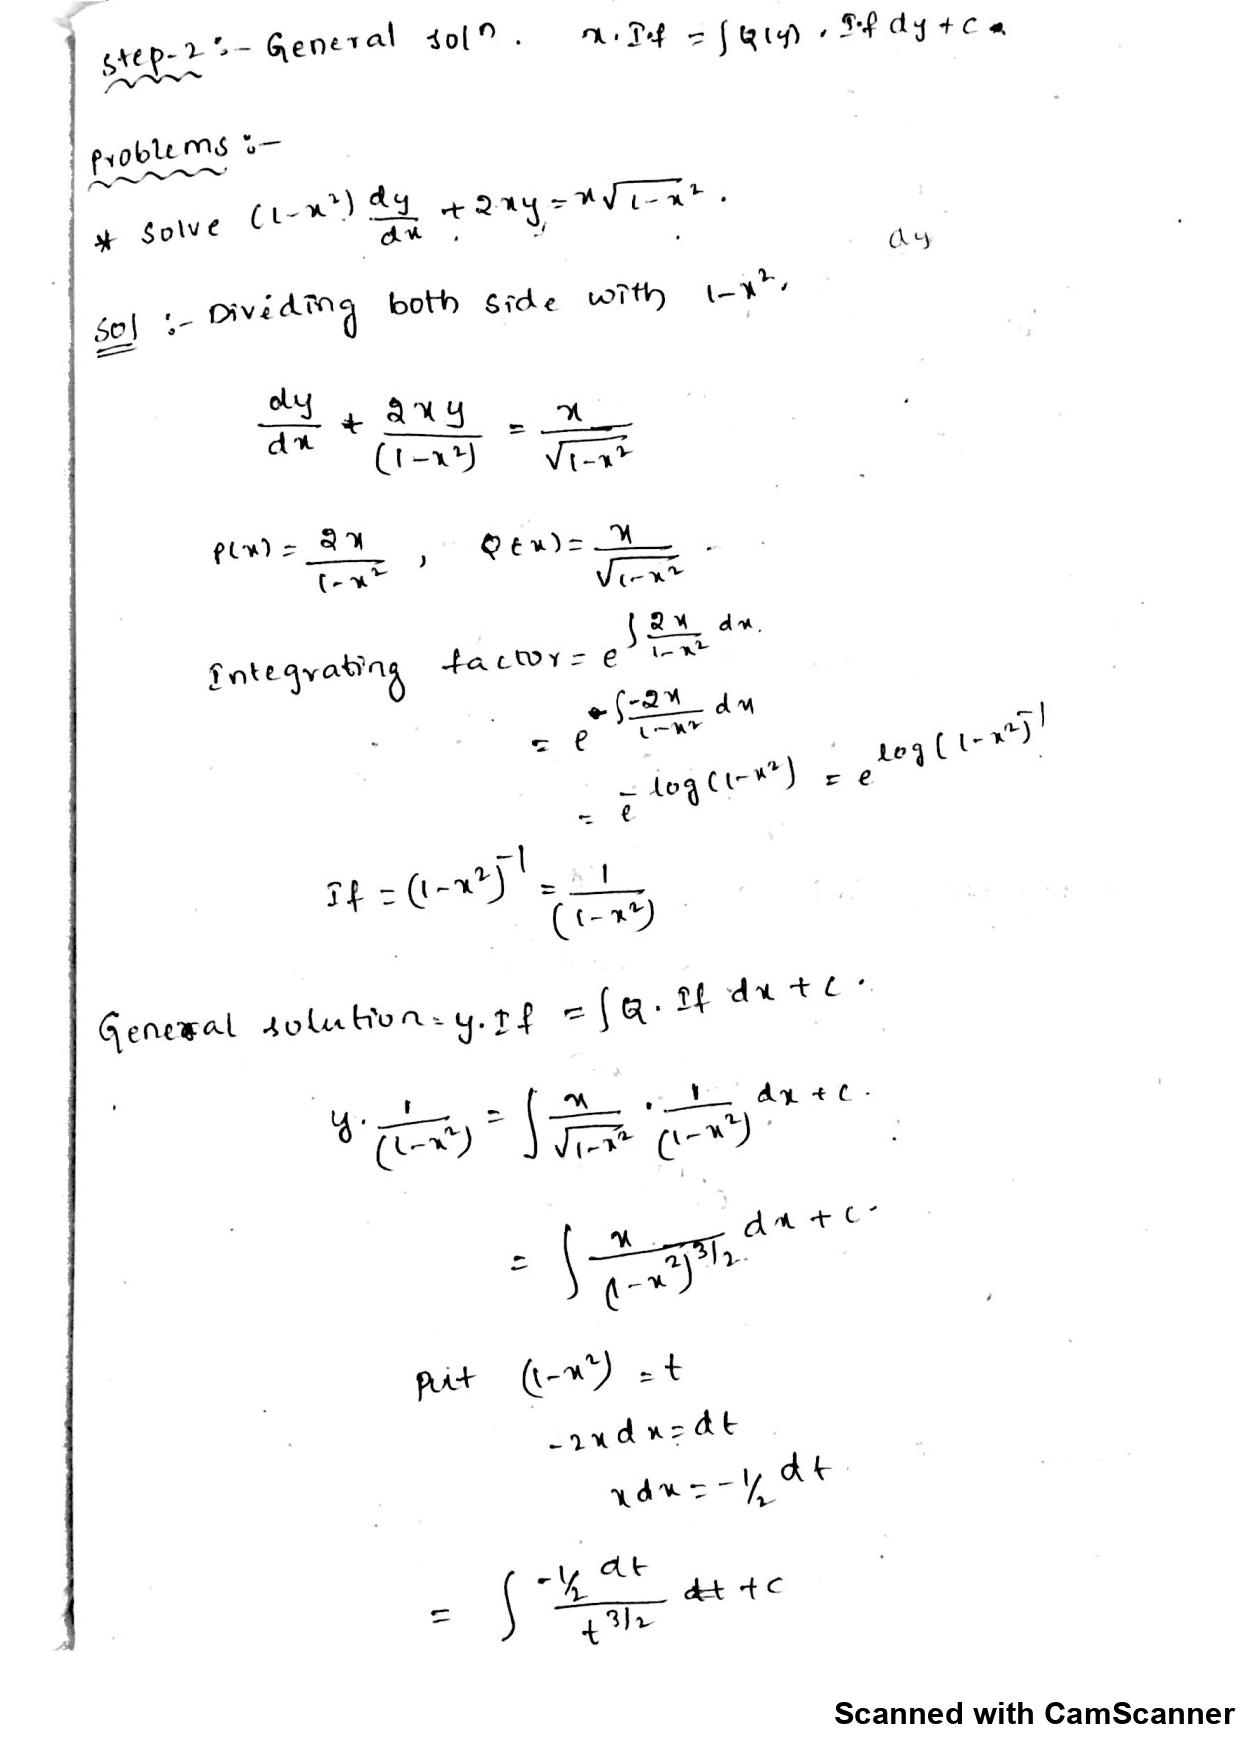 Step-2 :- General soln. x. I.f = ∫Q(y). I.f dy + c.
Problems :-
* Solve (1-x²) dy/dx + 2xy = x√1-x².
dy
Sol :- Dividing both side with 1-x².
dy/dx + 2xy/(1-x²) = x/√1-x²
P(x) = 2x/1-x², Q(x) = x/√1-x².
Integrating factor = e^∫2x/1-x² dx.
= e^-∫-2x/1-x² dx
= e^-log(1-x²) = e^log(1-x²)^-1
If = (1-x²)^-1 = 1/(1-x²)
General solution = y.If = ∫Q. If dx + c.
y. 1/(1-x²) = ∫ x/√1-x² . 1/(1-x²) dx + c.
= ∫ x/(1-x²)^3/2 dx + c.
Put (1-x²) = t
-2x dx = dt
x dx = -1/2 dt
= ∫ -1/2 dt/t^3/2 + c
Scanned with CamScanner